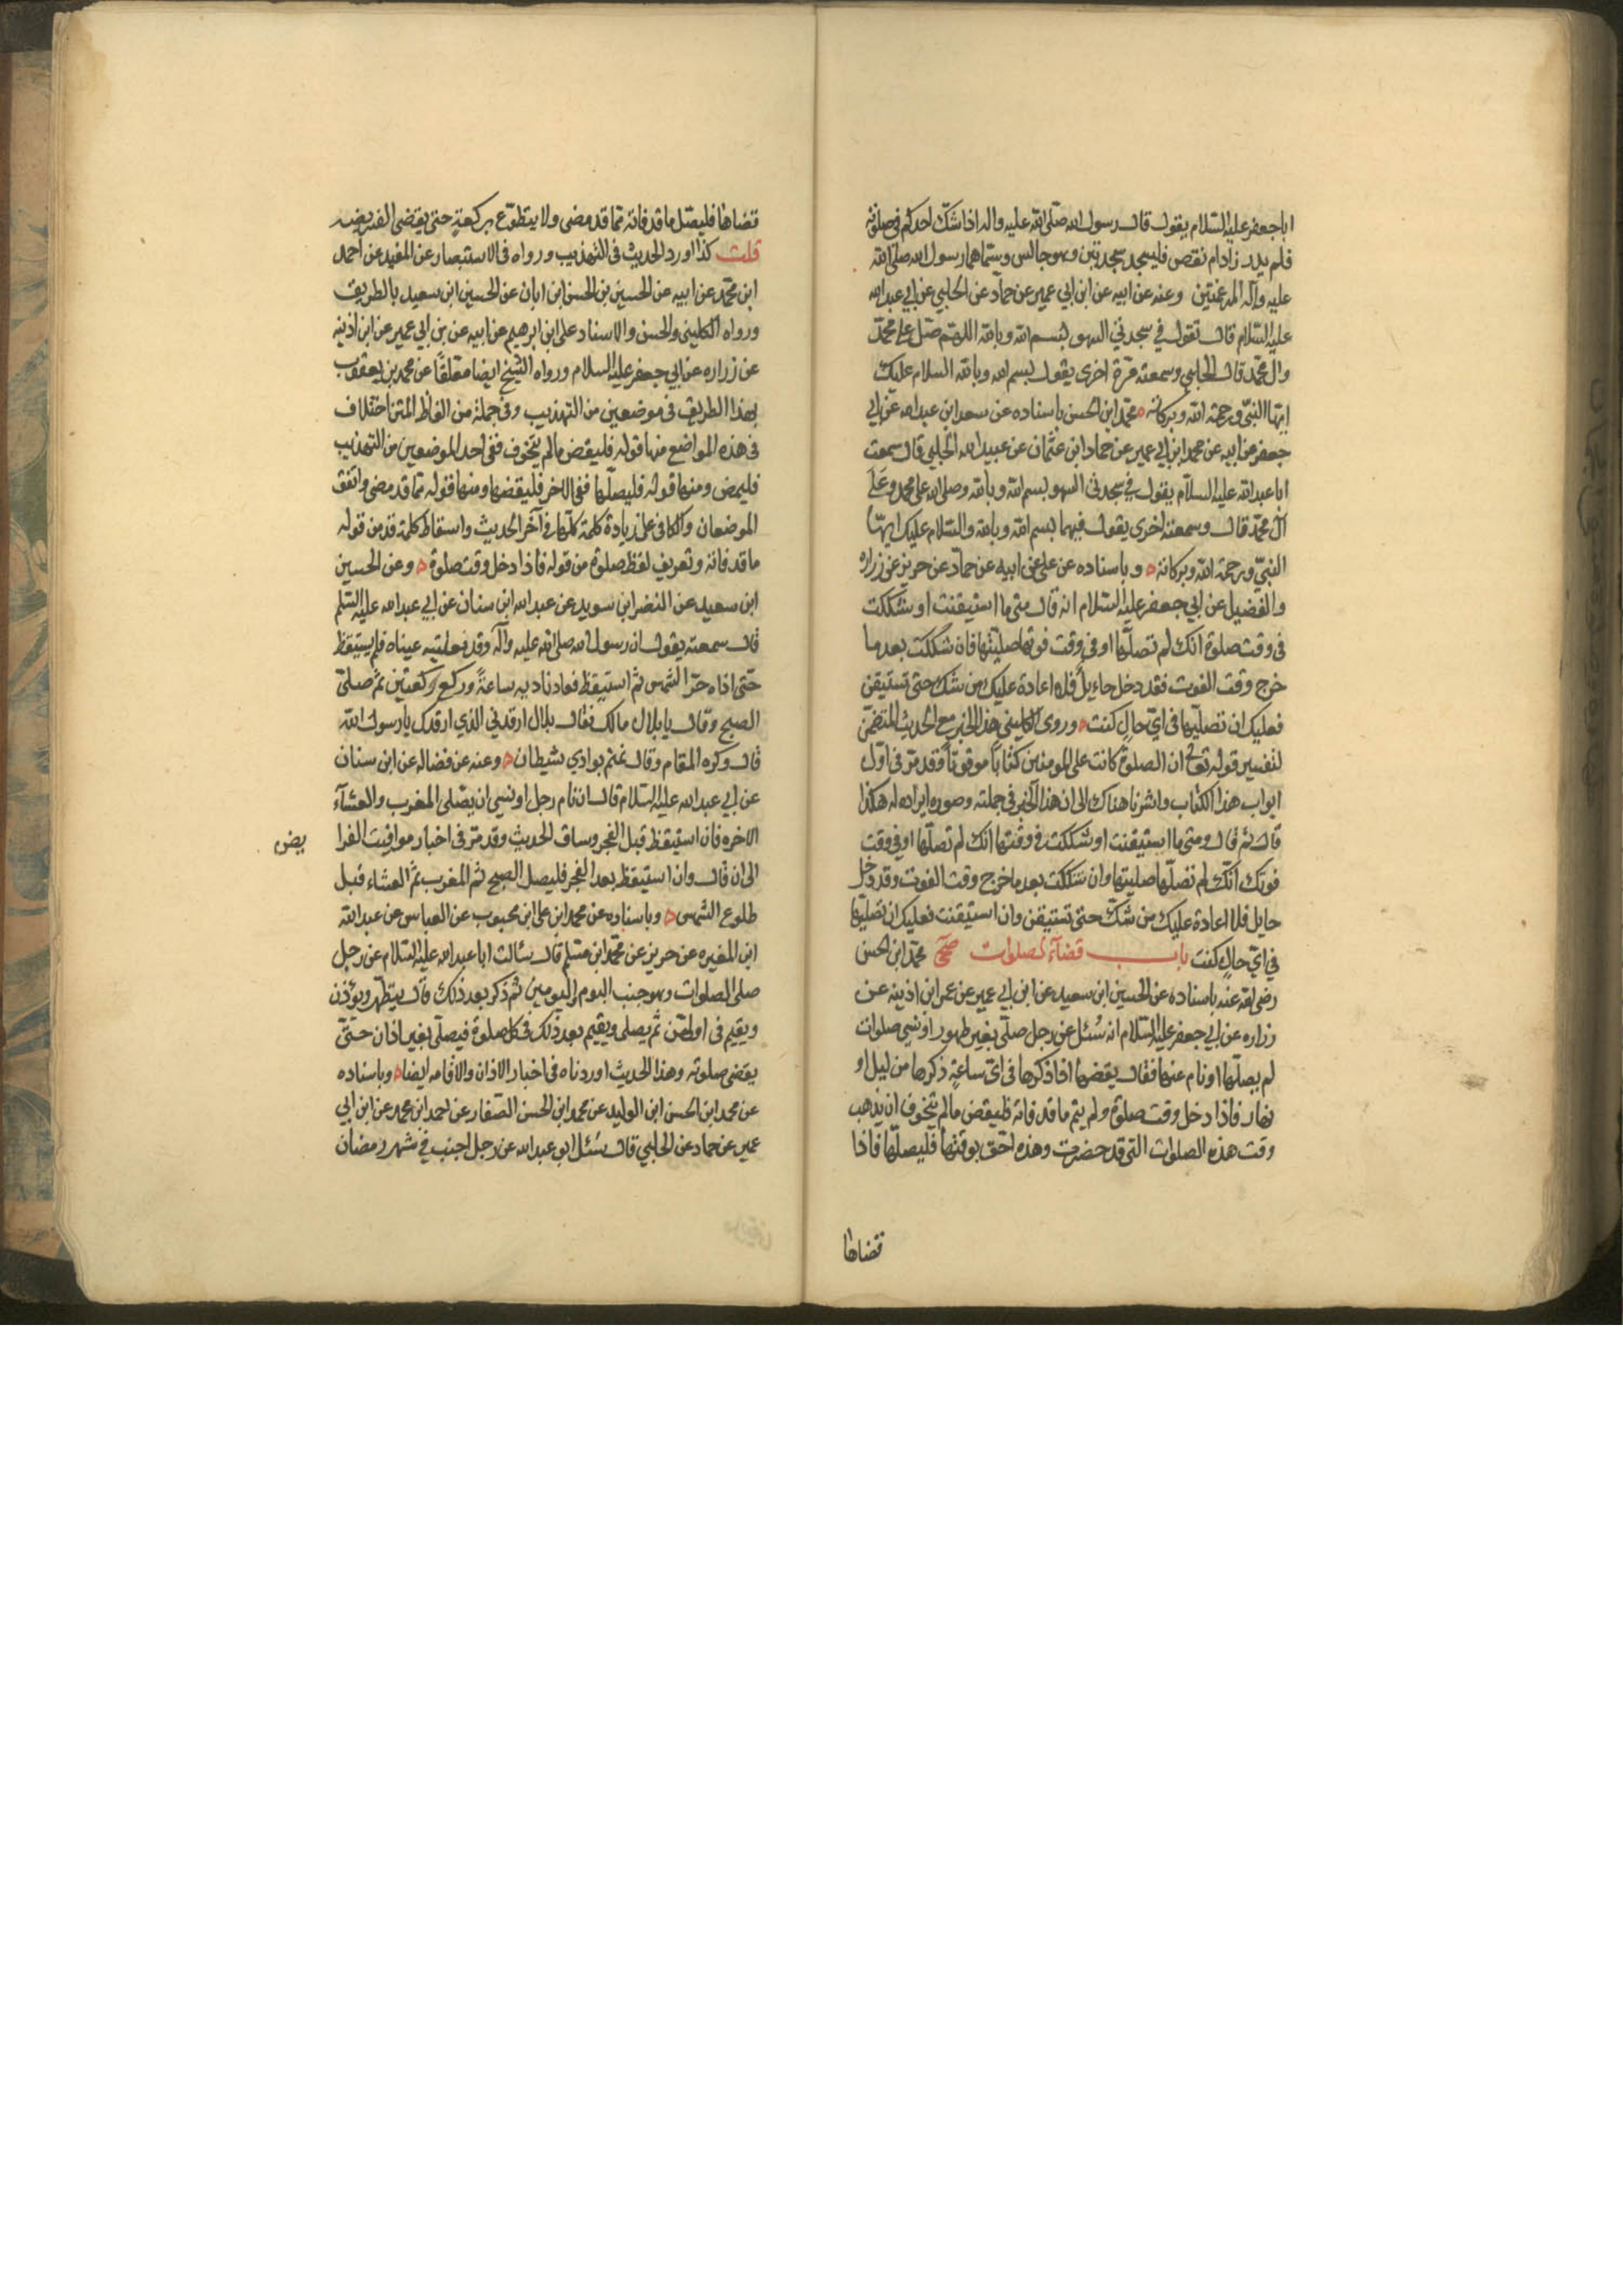 ابا جعفر عليه السلام يقول قال رسول الله صلى الله عليه واله اذا شك احدكم في صلوته
فلم يدر زاد ام نقص فليسجد سجدتين وهو جالس وسماهما رسول الله صلى الله
عليه وآله المرغمتين وعنه عن ابيه عن ابن ابي عمير عن حماد عن الحلبي عن ابي عبد الله
عليه السلام قال تقول في سجدتي السهو بسم الله وبالله اللهم صل على محمد
وال محمد قال الحلبي وسمعته مرة اخرى يقول بسم الله وبالله السلام عليك
ايها النبي ورحمة الله وبركاته محمد ابن الحسن باسناده عن سعد ابن عبد الله عن ابي
جعفر عن ابيه عن محمد ابن ابي عمير عن حماد ابن عثمان عن عبيد الله الحلبي قال سمعت
ابا عبد الله عليه السلام يقول في سجدتي السهو بسم الله وبالله وصلى الله على محمد وعلى
آل محمد قال وسمعته اخرى يقول فيهما بسم الله وبالله والسلام عليك ايها
النبي ورحمة الله وبركاته وباسناده عن علي عن ابيه عن حماد عن حريز عن زراره
والفضيل عن ابي جعفر عليه السلام انه قال متى ما استيقنت او شككت
في وقت صلوة انك لم تصلها او في وقت فوتها صليتها فان شككت بعد ما
خرج وقت الفوت فقد دخل حايل فلا اعادة عليك من شك حتى تستيقن
فعليك ان تصليها في اي حال كنت وروى الكليني هذا الخبر مع الحديث المتضمن
لتفسير قوله تعالى ان الصلوة كانت على المومنين كتابا موقوتا وقد مر في اول
ابواب هذا الكتاب واشرنا هناك الى ان هذا الخبر في جملته وصوره ايراده له هكذا
قال ثم قال ومتى ما استيقنت او شككت في وقتها انك لم تصلها او في وقت
فوتك انك لم تصلها صليتها وان شككت بعد ما خرج وقت الفوت وقد دخل
حايل فلا اعادة عليك من شك حتى تستيقن وان استيقنت فعليك ان تصليها
في اي حال كنت باب قضآء الصلوات صحي محمد ابن الحسن
رضي الله عنه باسناده عن الحسين ابن سعيد عن ابن ابي عمير عن عمر ابن اذينه عن
زراره عن ابي جعفر عليه السلام انه سئل عن رجل صلى بغير طهور او نسي صلوات
لم يصلها او نام عنها فقال يقضها اذا ذكرها في اي ساعة ذكرها من ليل او
نهار فاذا دخل وقت صلوة ولم يتم ما قد فاته فليقض ما لم يتخوف ان يذهب
وقت هذه الصلوات التي قد حضرت وهذه احق بوقتها فليصلها فاذا
قضاها
قضاها فليصل ما قد فاته مما قد مضى ولا يتطوع بركعة حتى يقضى الفريضه
قلت كذا اورد الحديث في التهذيب ورواه في الاستبصار عن المفيد عن احمد
ابن محمد عن ابيه عن الحسين بن الحسن ابن ابان عن الحسين ابن سعيد بالطريق
ورواه الكليني والحسن والاسناد على ابن ابرهيم عن ابيه عن بن ابي عمير عن ابن اذينه
عن زراره عن ابي جعفر عليه السلام ورواه الشيخ ايضا معلقا عن محمد بن يعقوب
بهذا الطريق في موضعين من التهذيب وفي جملة من الفاظ المتن اختلاف
في هذه المواضع منها قوله فليقض ما لم يتخوف ففي احد الموضعين من التهذيب
فليمض ومنها قوله فليصلها ففي الاخر فليقضها ومنها قوله مما قد مضى واتفق
الموضعان والكافي على زيادة كلمة كلها في آخر الحديث واسقاط كلمة قد من قوله
ما قد فاته وتعريف لفظ صلوة من قوله فاذا دخل وقت صلوة وعن الحسين
ابن سعيد عن النضر ابن سويد عن عبد الله ابن سنان عن ابي عبد الله عليه السلم
قال سمعته يقول ان رسول الله صلى الله عليه وآله وقد فعلبته عيناه فلم يستيقظ
حتى اذاه حر الشمس ثم استيقظ فعاد ناديه ساعة وركع ركعتين ثم صلى
الصبح وقال يا بلال مالك فقال بلال ارقدني الذي ارقدك يا رسول الله
قال وكره المقام وقال نمتم بوادي شيطان وعنه عن فضاله عن ابن سنان
عن ابي عبد الله عليه السلام قال ان نام رجل او نسي ان يصلى المغرب والعشآء
الاخره فان استيقظ قبل الفجر وساق الحديث وقد مر في اخبار مواقيت الفرا
يض
الى ان قال وان استيقظ بعد الفجر فليصل الصبح ثم المغرب ثم العشاء قبل
طلوع الشمس وباسناده عن محمد ابن على ابن محبوب عن العباس عن عبد الله
ابن المغيره عن حريز عن محمد ابن مسلم قال سئالت ابا عبد الله عليه السلام عن رجل
صلى الصلوات وهو جنب اليوم واليومين ثم ذكر بعد ذلك قال يتطهر ويؤذن
ويقيم في اولهن ثم يصلى ويقيم بعد ذلك في كل صلوة فيصلى بغير اذان حتى
يقضى صلوته وهذا الحديث اوردناه في اخبار الاذان والاقامه ايضا وباسناده
عن محمد ابن الحسن ابن الوليد عن محمد ابن الحسن الصفار عن احمد ابن محمد عن ابن ابي
عمير عن حماد عن الحلبي قال سئل ابو عبد الله عن رجل اجنب في شهر رمضان